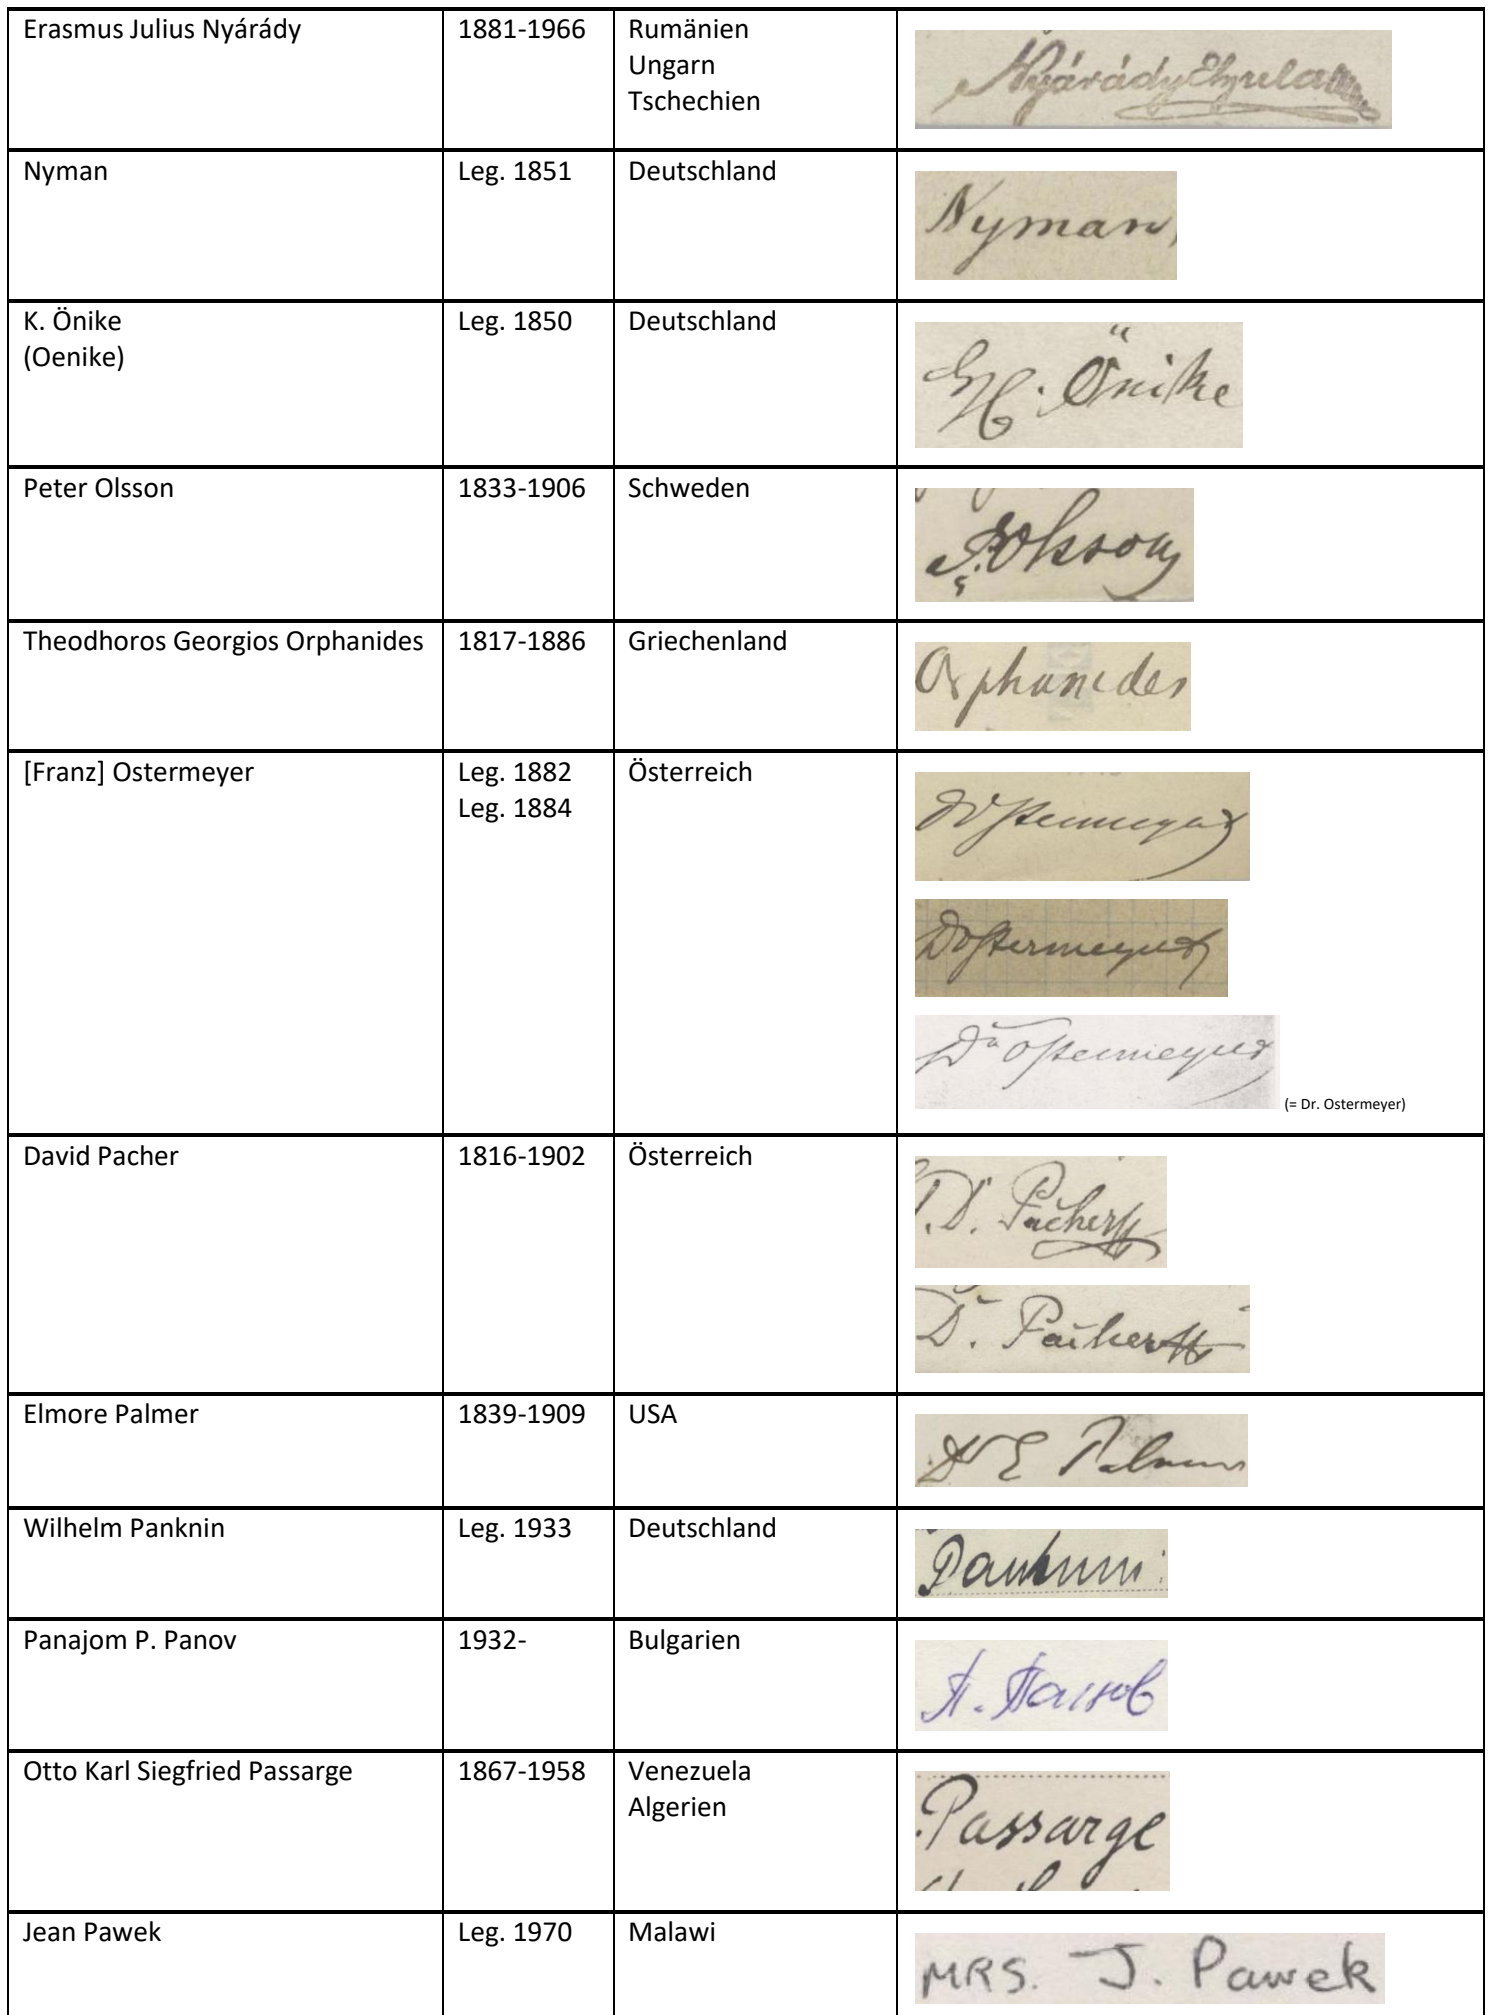 Erasmus Julius Nyárády 1881-1966 Rumänien
Ungarn
Tschechien
Nyárády
Nyman Leg. 1851 Deutschland
Nyman,
K. Önike Leg. 1850 Deutschland
(Oenike)
Önike
Peter Olsson 1833-1906 Schweden
P. Olsson
Theodhoros Georgios Orphanides 1817-1886 Griechenland
Orphanides
[Franz] Ostermeyer Leg. 1882 Österreich
Leg. 1884
Dr Ostermeyer
Dr Ostermeyer
Dr Ostermeyer
(= Dr. Ostermeyer)
David Pacher 1816-1902 Österreich
D. Pacher
D. Pacher
Elmore Palmer 1839-1909 USA
Dr E Palmer
Wilhelm Panknin Leg. 1933 Deutschland
Panknin
Panajom P. Panov 1932- Bulgarien
П. Панов
Otto Karl Siegfried Passarge 1867-1958 Venezuela
Algerien
Passarge
Jean Pawek Leg. 1970 Malawi
MRS. J. Pawek